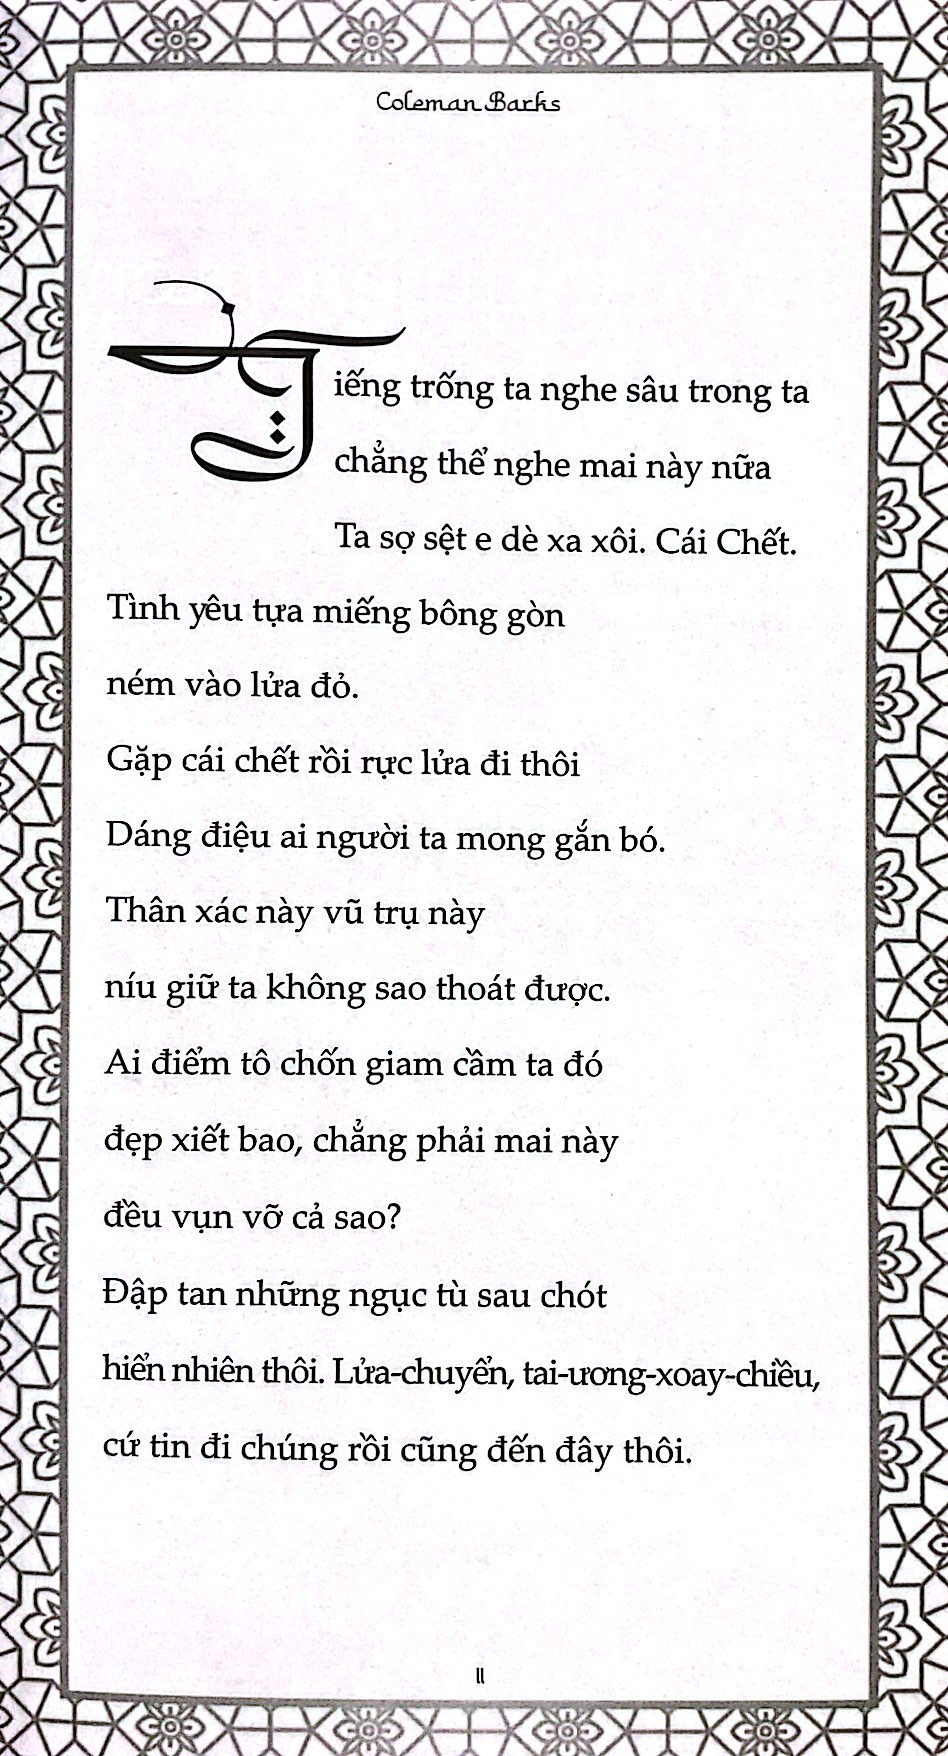 Coleman Barks
Tiếng trống ta nghe sâu trong ta
chẳng thể nghe mai này nữa
Ta sợ sệt e dè xa xôi. Cái Chết.
Tình yêu tựa miếng bông gòn
ném vào lửa đỏ.
Gặp cái chết rồi rực lửa đi thôi
Dáng điệu ai người ta mong gắn bó.
Thân xác này vũ trụ này
níu giữ ta không sao thoát được.
Ai điểm tô chốn giam cầm ta đó
đẹp xiết bao, chẳng phải mai này
đều vụn vỡ cả sao?
Đập tan những ngục tù sau chót
hiển nhiên thôi. Lửa-chuyển, tai-ương-xoay-chiều,
cứ tin đi chúng rồi cũng đến đây thôi.
11